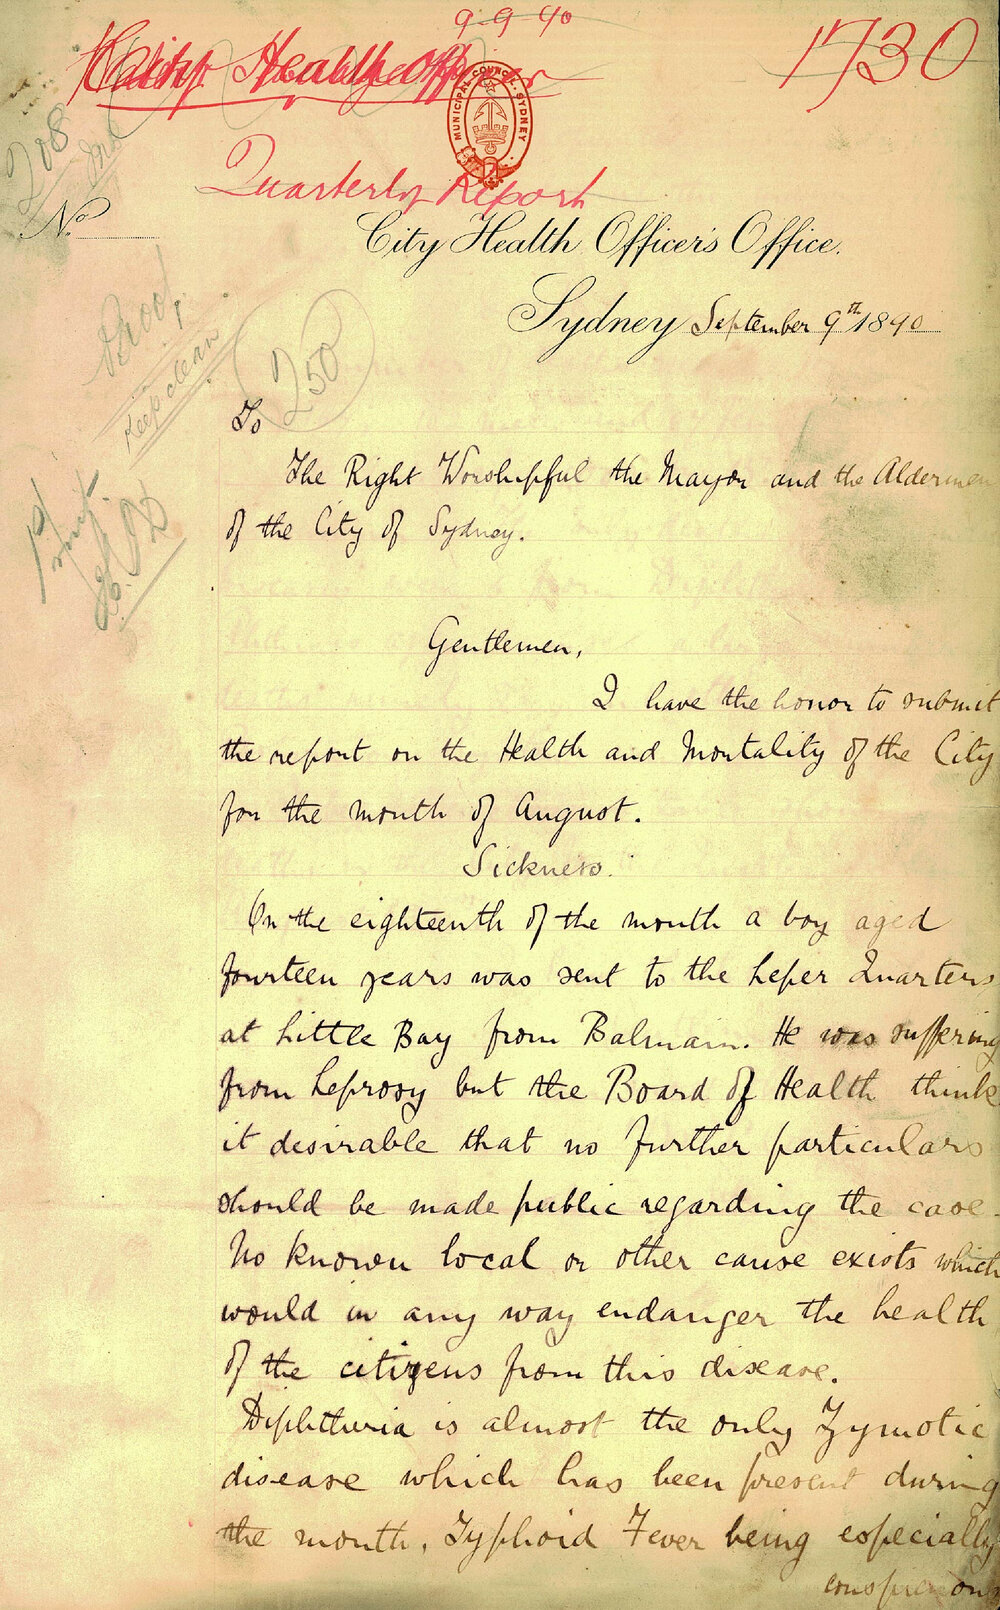 9-9-90
City Health Officer
1730
MUNICIPAL COUNCIL. SYDNEY
Quarterly Report
208
No.
City Health Officer's Office.
Sydney September 9th 1890
Proof,
Keep clean
250
To
The Right Worshipful the Mayor and the Aldermen
of the City of Sydney.
Gentlemen,
I have the honor to submit
the report on the Health and Mortality of the City
for the month of August.
Sickness.
On the eighteenth of the month a boy aged
fourteen years was sent to the Leper Quarters
at Little Bay from Balmain. He was suffering
from Leprosy but the Board of Health think
it desirable that no further particulars
should be made public regarding the case.
No known local or other cause exists which
would in any way endanger the health
of the citizens from this disease.
Diphtheria is almost the only Zymotic
disease which has been present during
the month, Typhoid Fever being especially
conspicuous